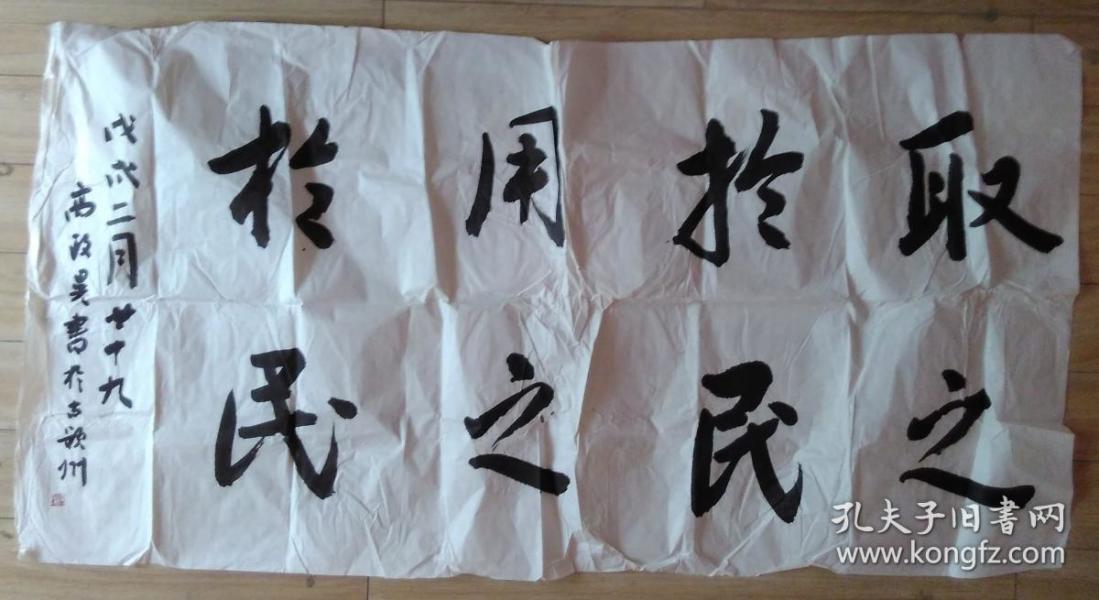 取之
於民
用之
於民
戊戌二月廿十九
高政昊書於古潁州
孔夫子旧書网
www.kongfz.com